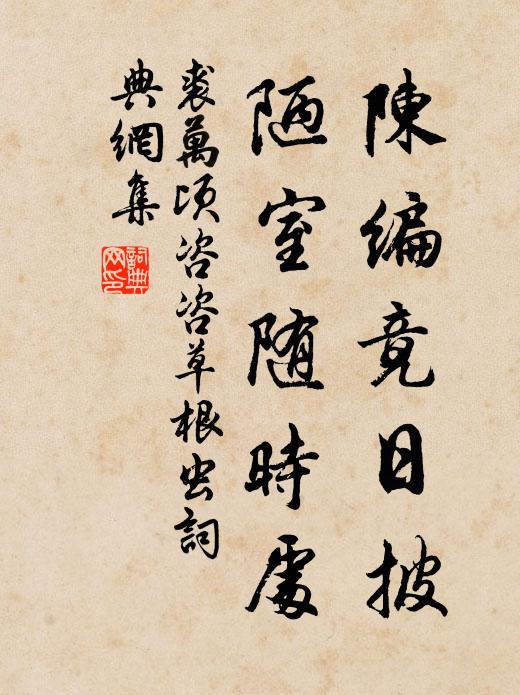 陳編竟日披
陋室随時處
裘萬頃咨咨草根虫詞
典網集
詞典
网印